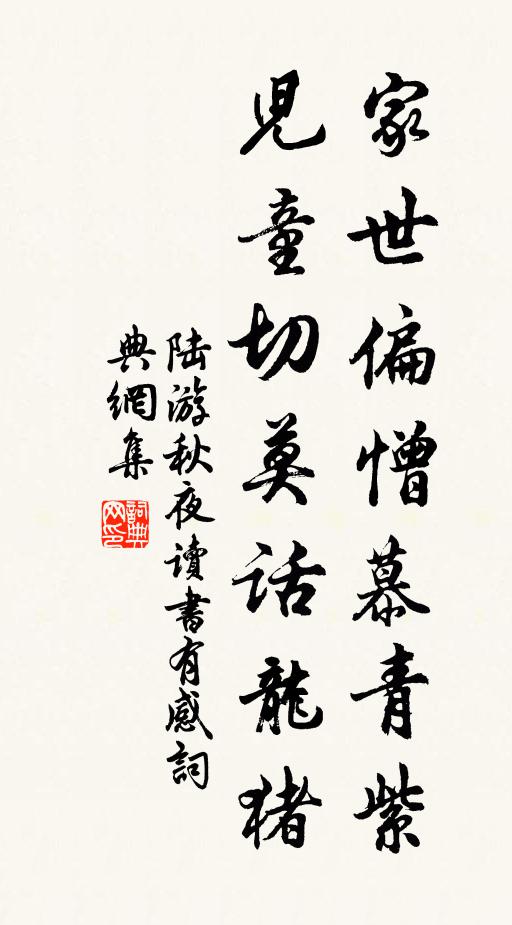 家世偏憎慕青紫
兒童切莫話龍猪
陆游秋夜讀書有感詞
典網集
詞典
网印